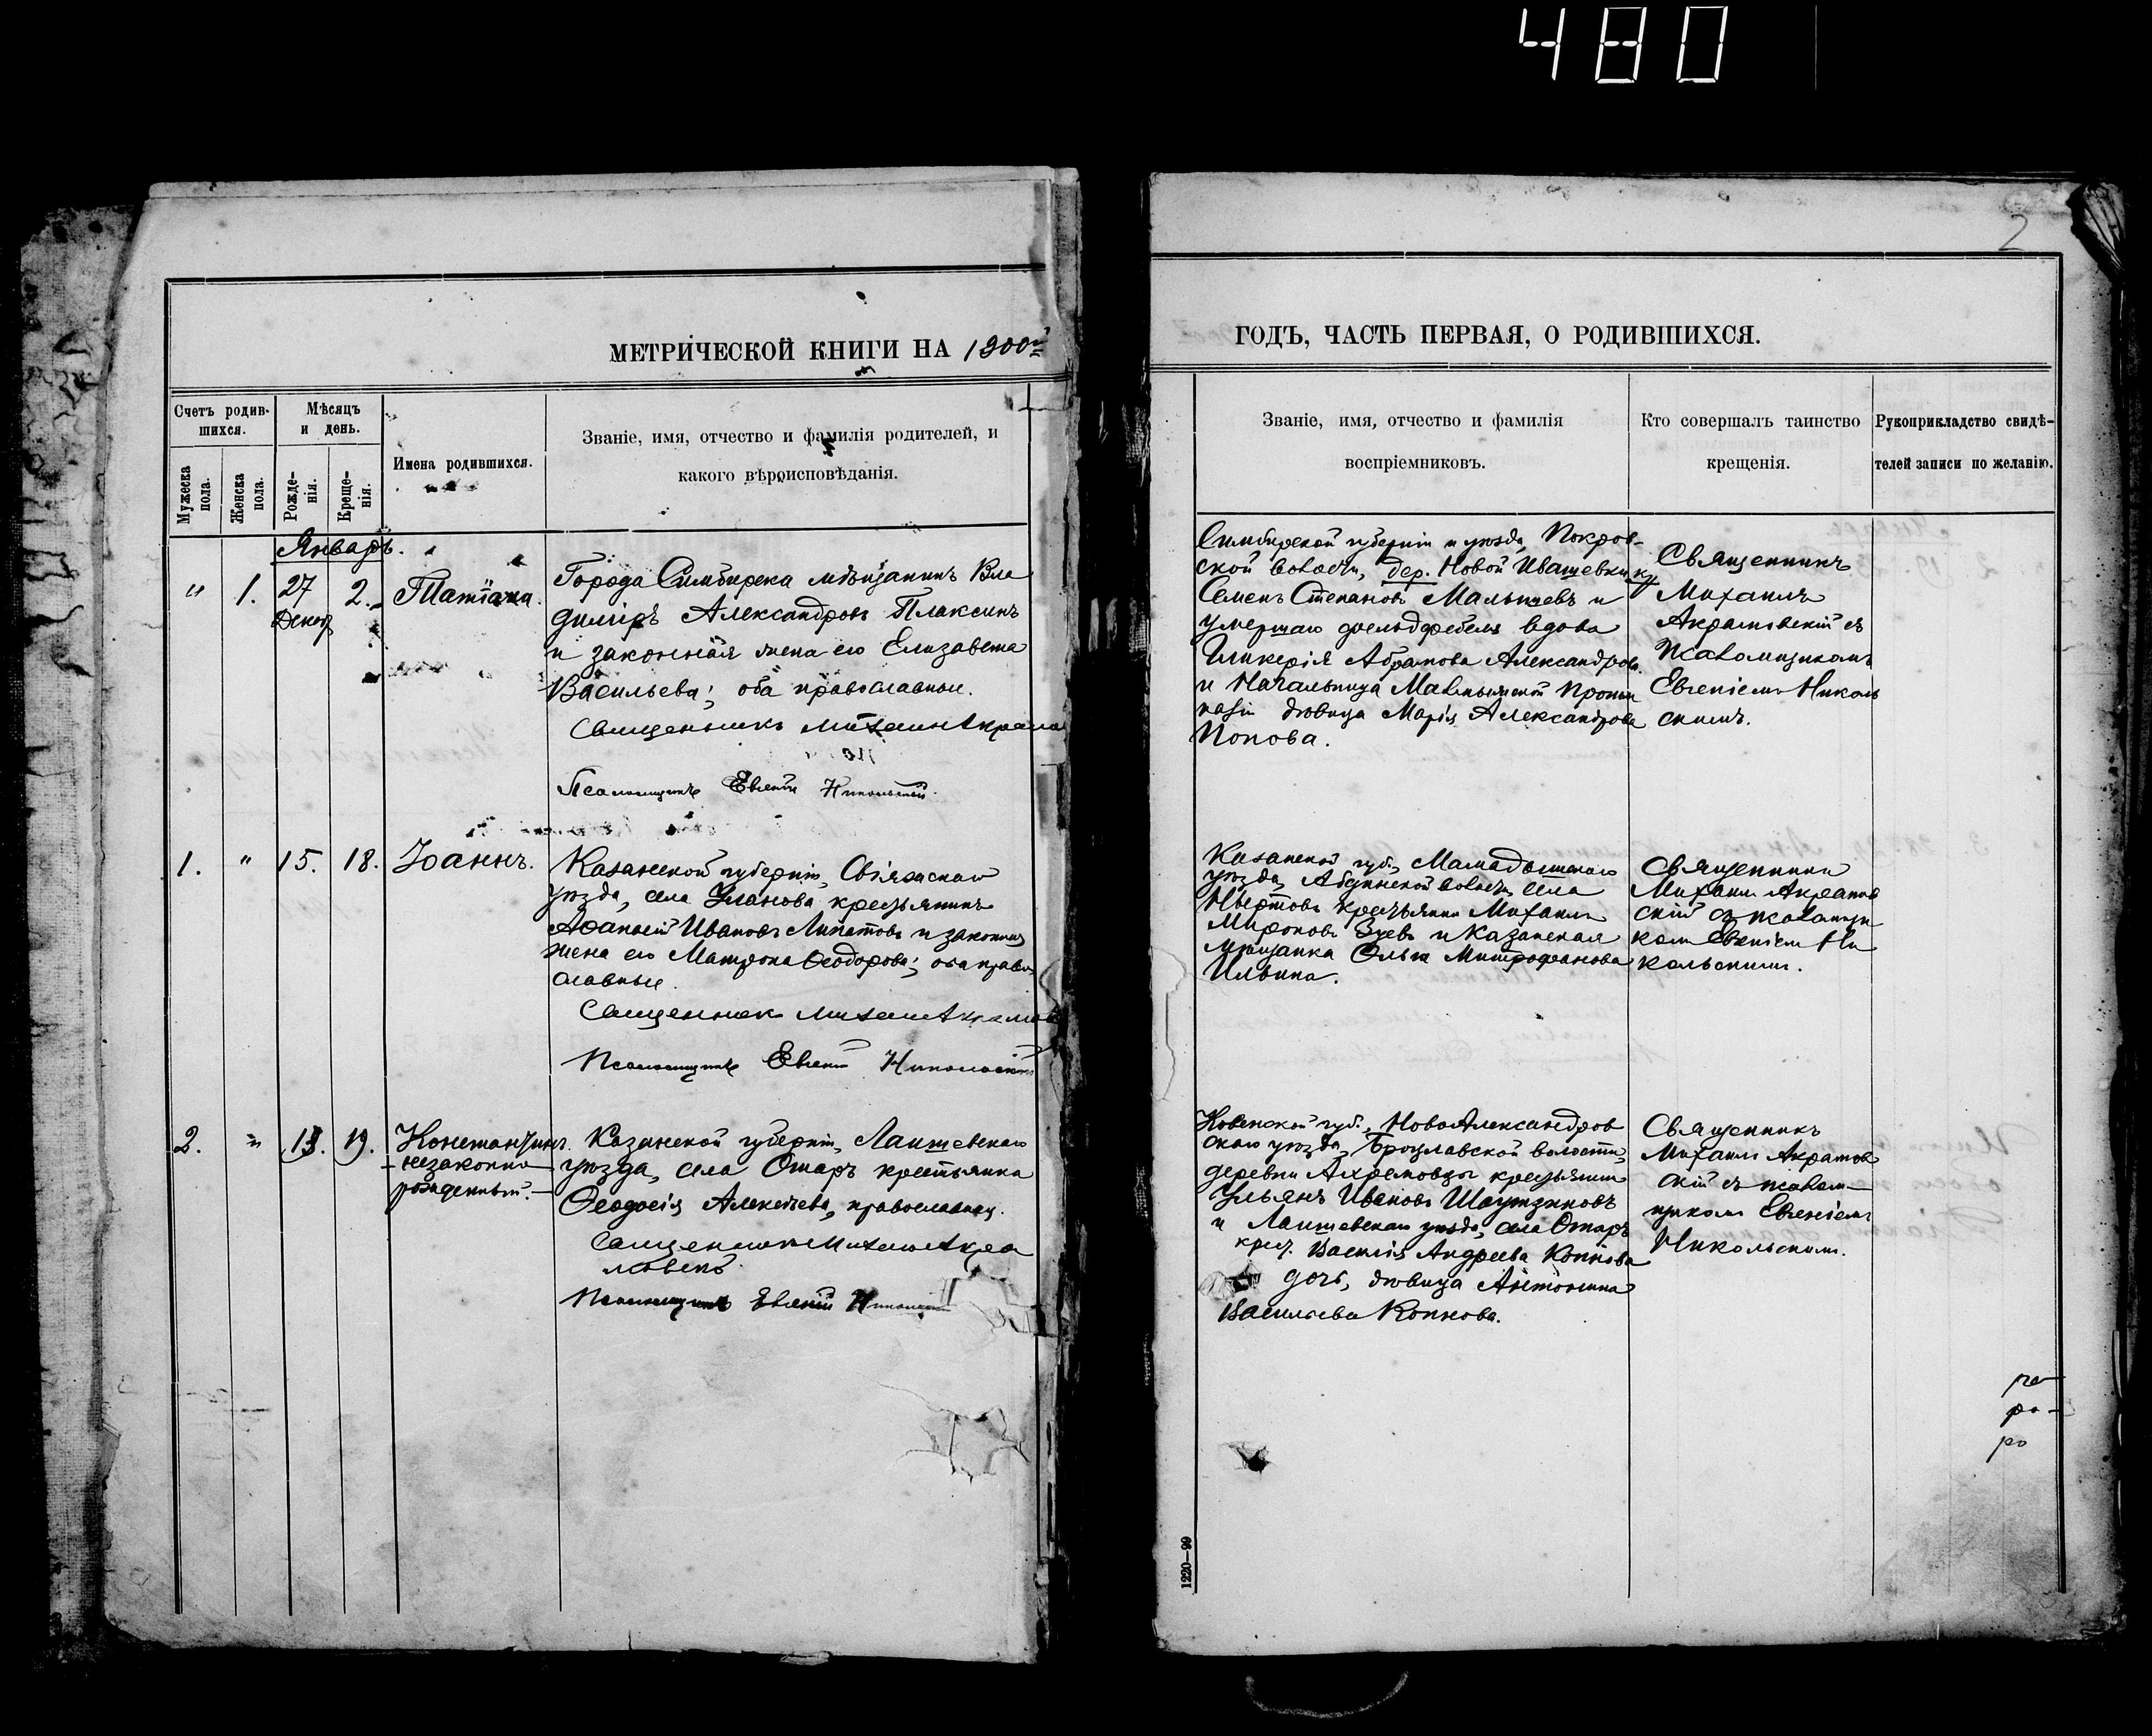 480
2
МЕТРИЧЕСКОЙ КНИГИ НА 1900й
ГОДЪ, ЧАСТЬ ПЕРВАЯ, О РОДИВШИХСЯ.
Счетъ родив-
шихся.
Мужеска
пола.
Женска
пола.
Мѣсяцъ
и день.
Рожде-
нія.
Креще-
нія.
Имена родившихся.
Званіе, имя, отчество и фамилія родителей, и
какого вѣроисповѣданія.
Званіе, имя, отчество и фамилія
воспріемниковъ.
Кто совершалъ таинство
крещенія.
Рукоприкладство свидѣ-
телей записи по желанію.
Январь.
"
1.
27
Декаб
2.
Татіана.
Города Симбирска мѣщанинъ Вла
диміръ Александровъ Плаксинъ
и законная жена его Елизавета
Васильева; оба православные.
Священникъ Михаилъ
Псаломщикъ Евгеній Никольскій.
Симбирской губерніи и уѣзда, Покров-
ской волости, дер. Новой Ивашевки кр
Семенъ Степановъ Малышевъ и
умершаго фельдфебеля вдова
Гликерія Абрамова Александрова
и Начальница Мавлинской
дѣвица Марія Александрова
Попова.
Священникъ
Михаилъ
Акрамовскій съ
Псаломщикомъ
Евгеніемъ Николь
скимъ.
1.
"
15.
18.
Іоаннъ.
Казанской губерніи, Свіяжскаго
уѣзда, села Уланова крестьянинъ
Аѳанасій Ивановъ Липатовъ и законная
жена его Матрона Ѳеодорова; оба право
славные.
Священникъ Михаилъ Акрамовс
Псаломщикъ Евгеній Никольскій
Казанской губ., Мамадышскаго
уѣзда, Абдинской волости, села
Ныртовъ крестьянинъ Михаилъ
Мироновъ Зуевъ и Казанская
мѣщанка Ольга Митрофанова
Ильина.
Священникъ
Михаилъ Акрамов
скій съ псаломщи
комъ Евгеніемъ Ни
кольскимъ.
2.
"
13.
19.
Константинъ
незаконно-
рожденный.
Казанской губерніи, Лаишевскаго
уѣзда, села Отаръ крестьянка
Ѳеодосія Алексѣева, православная.
Священникъ Михаилъ Акра
мовскій
Псаломщикъ Евгеній Никольскій
Ковенской губ., НовоАлександров
скаго уѣзда, Брацлавской волости,
деревни крестьянинъ
Ульянъ Ивановъ
и Лаишевскаго уѣзда, села Отаръ
крест. Василія Андреева Копнова
дочь, дѣвица Антонина
Васильева Копнова.
Священникъ
Михаилъ Акрамов
скій съ псалом-
щикомъ Евгеніемъ
Никольскимъ.
ра-
ро
1220—99